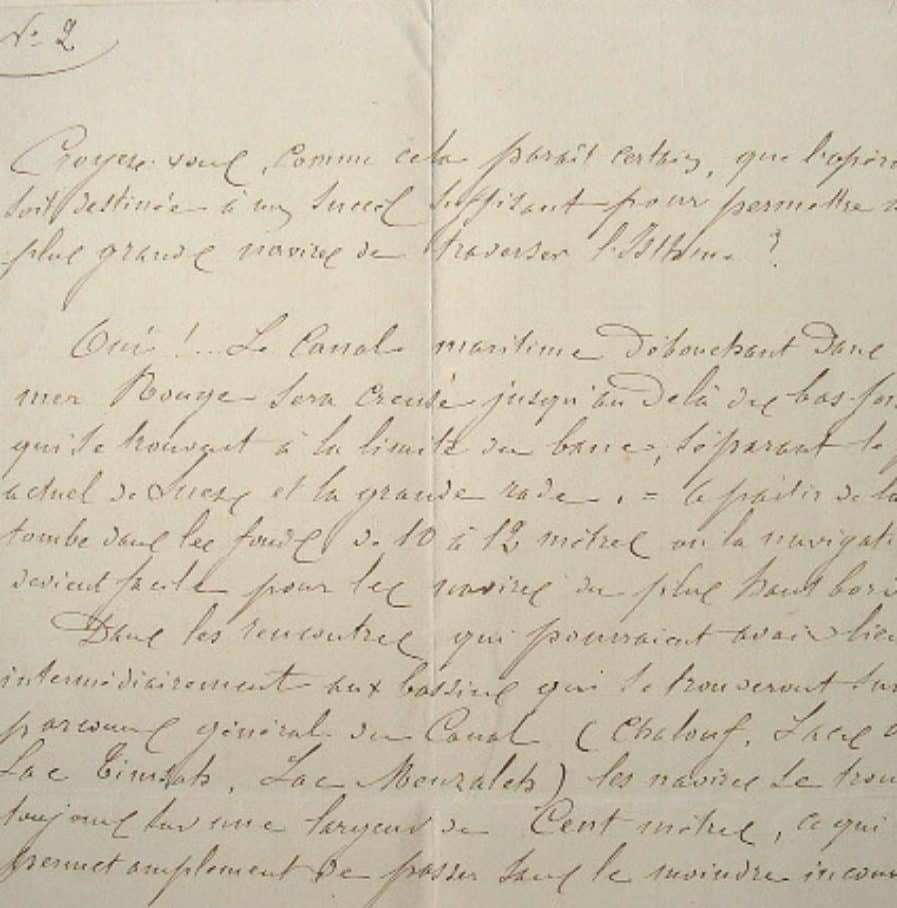 N° 2
Croyez-vous, comme cela parait certain, que l'opéra
soit destinée à un succès suffisant pour permettre
plus grands navires de traverser l'Isthme ?
Oui !... Le Canal maritime débouchant dans
mer Rouge sera creusé jusqu'au delà des bas-fon
qui se trouvent à la limite du banc, séparant le
actuel de Suez et la grande rade. = à partir de là
tombe dans les fonds de 10 à 12 mètres où la navigati
devient facile pour les navires du plus haut bor
Dans les rencontres qui pourraient avoir lieu
intermédiairement aux bassins qui se trouveront sur
parcours général du Canal (Chalouf, Lacs
Lac Timsah, Lac Menzaleh) les navires se trou
toujours sur une largeur de Cent mètres, ce qui
permet amplement de passer sans le moindre incon